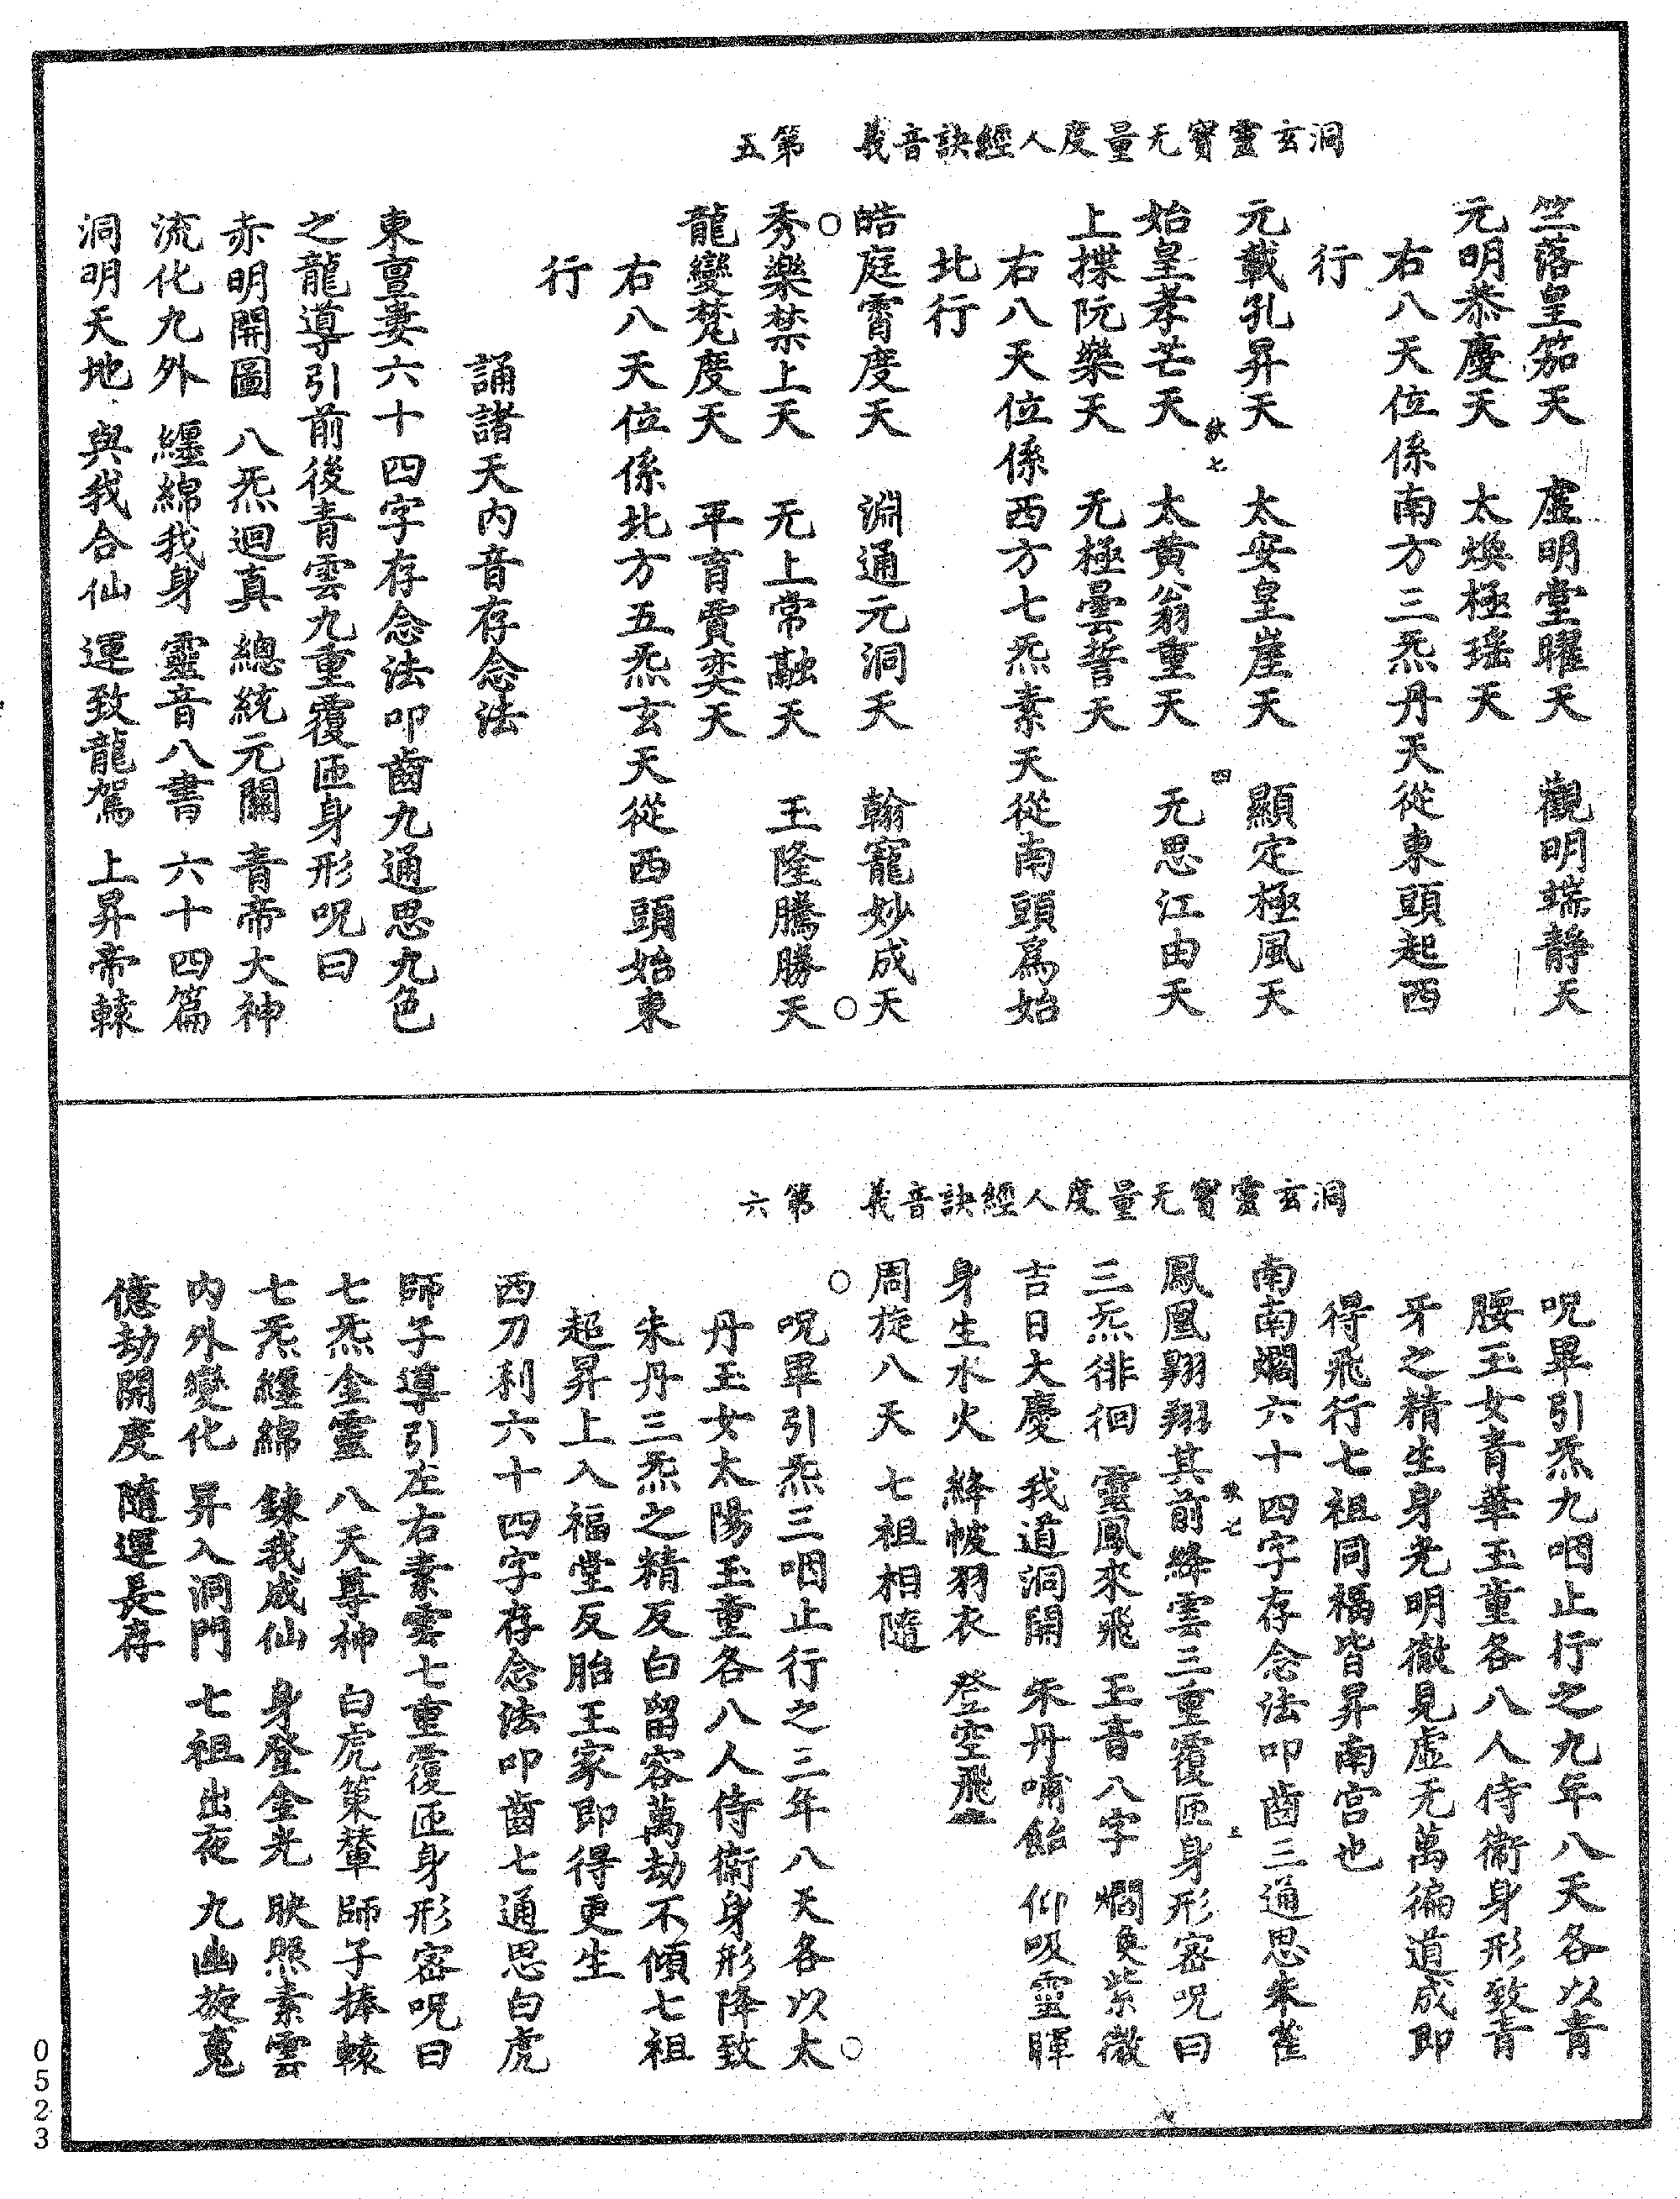 洞玄靈寶无量度人經訣音義　第五
竺落皇笳天　虛明堂曜天　觀明端靜天
元明恭慶天　太煥極瑤天
右八天位係南方三炁丹天從東頭起西
行
元載孔昇天　太安皇崖天　顯定極風天
始皇孝芒天　太黃翁重天　无思江由天
上揲阮樂天　无極曇誓天
右八天位係西方七炁素天從南頭為始
北行
皓庭霄度天　淵通元洞天　翰寵妙成天
秀樂禁上天　无上常融天　玉隆騰勝天
龍變梵度天　平育賈奕天
右八天位係北方五炁玄天從西頭始東
行
誦諸天內音存念法
東亶婁六十四字存念法叩齒九通思九色
之龍導引前後青雲九重覆匝身形呪曰
赤明開圖　八炁迴真　總統元關　青帝大神
流化九外　纏綿我身　靈音八書　六十四篇
洞明天地　與我合仙　運致龍駕　上昇帝轅
洞玄靈寶无量度人經訣音義　第六
呪畢引炁九咽止行之九年八天各以青
腰玉女青華玉童各八人侍衞身形致青
牙之精生身光明徹見虛无萬徧道成即
得飛行七祖同福皆昇南宮也
南南嫻六十四字存念法叩齒三通思朱雀
鳳凰翔翔其前絳雲三重覆匝身形密呪曰
三炁徘徊　雲鳳來飛　玉音八字　爛奐紫微
吉日大慶　我道洞開　朱丹哺飴　仰吸靈暉
身生水火　絳帔羽衣　登空飛
周旋八天　七祖相隨
呪畢引炁三咽止行之三年八天各以太
丹玉女太陽玉童各八人侍衞身形降致
朱丹三炁之精反白留容萬劫不傾七祖
超昇上入福堂反胎王家即得更生
西刀利六十四字存念法叩齒七通思白虎
師子導引左右素雲七重覆匝身形密呪曰
七炁金靈　八天尊神　白虎策輦　師子捧轅
七炁纏綿　鍊我成仙　身登金光　映照素雲
內外變化　昇入洞門　七祖出夜　九幽旋魂
億劫開度　隨運長存
0523